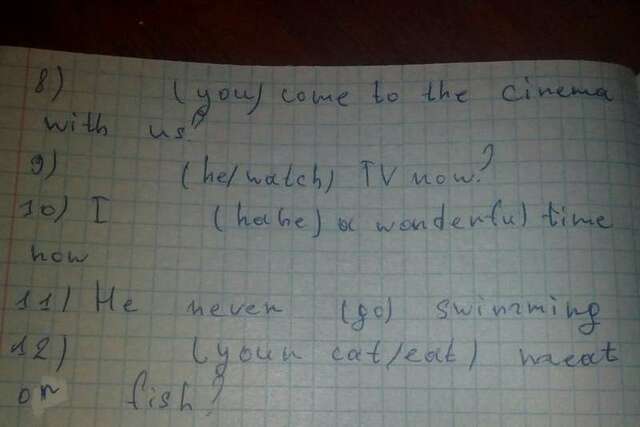 8) (you) come to the cinema
with us?
9) (he/watch) TV now?
10) I (have) a wonderful time
now
11) He never (go) swimming
12) (your cat/eat) meat
or fish?